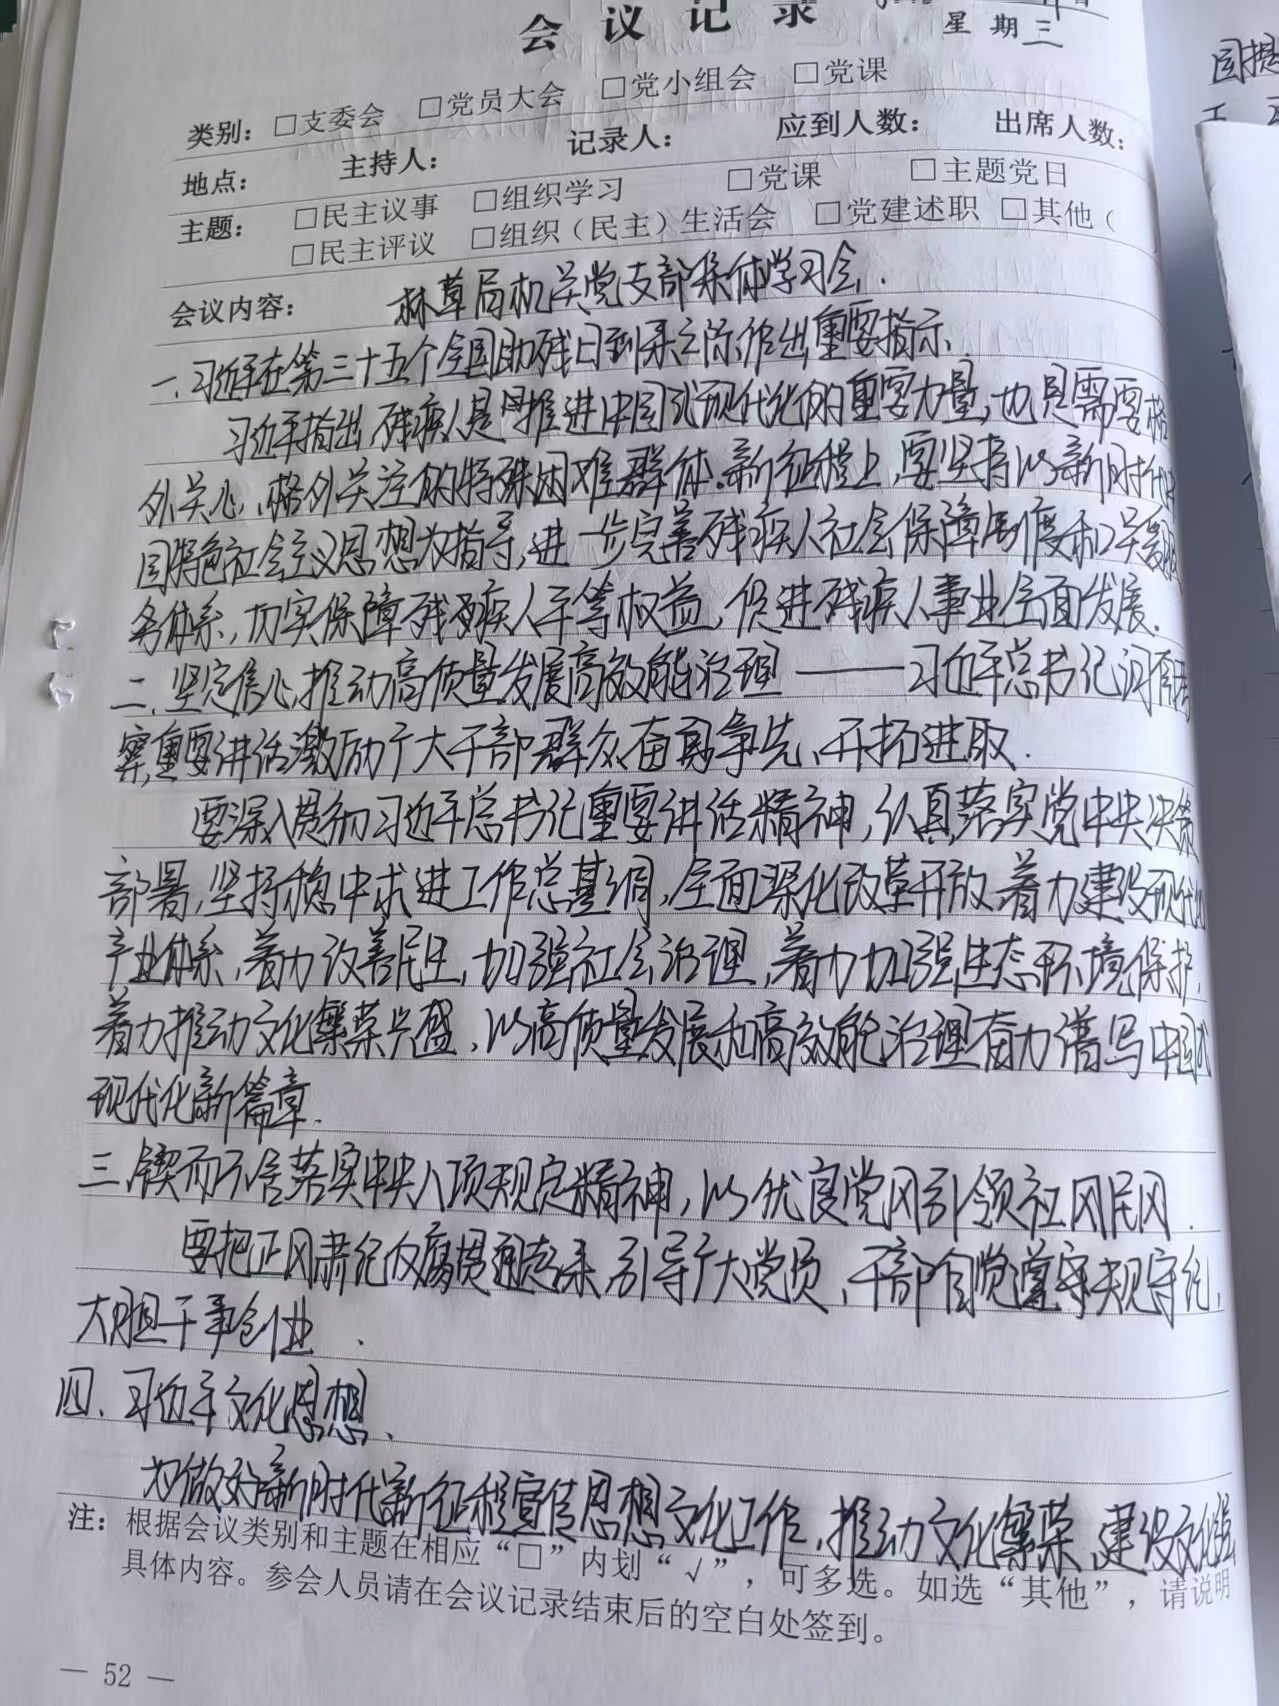 会议记录
星期三
类别：□支委会 □党员大会 □党小组会 □党课
地点： 主持人： 记录人： 应到人数： 出席人数：
主题： □民主议事 □组织学习 □党课 □主题党日
□民主评议 □组织（民主）生活会 □党建述职 □其他（
会议内容： 林草局机关党支部集体学习会.
一.习近平在第三十五个全国助残日到来之际作出重要指示.
习近平指出 残疾人是推进中国式现代化的重要力量,也是需要格
外关心、格外关注的特殊困难群体.新征程上,要坚持以新时代
国特色社会主义思想为指导,进一步完善残疾人社会保障制度和
务体系,切实保障残疾人平等权益,促进残疾人事业全面发展.
二.坚定信心,推动高质量发展高效能治理——习近平总书记河南
察重要讲话激励广大干部群众奋勇争先、开拓进取.
要深入贯彻习近平总书记重要讲话精神,认真落实党中央决策
部署,坚持稳中求进工作总基调,全面深化改革开放.着力建设现代化
产业体系,着力改善民生,加强社会治理,着力加强生态环境保护,
着力推动文化繁荣兴盛,以高质量发展和高效能治理奋力谱写中国式
现代化新篇章.
三.锲而不舍落实中央八项规定精神,以优良党风引领社风民风.
要把正风肃纪反腐贯通起来,引导广大党员、干部自觉遵守规守纪,
大胆干事创业.
四、习近平文化思想.
为做好新时代新征程宣传思想文化工作,推动文化繁荣、建设文化强
注：根据会议类别和主题在相应“□”内划“√”，可多选。如选“其他”，请说明
具体内容。参会人员请在会议记录结束后的空白处签到。
— 52 —